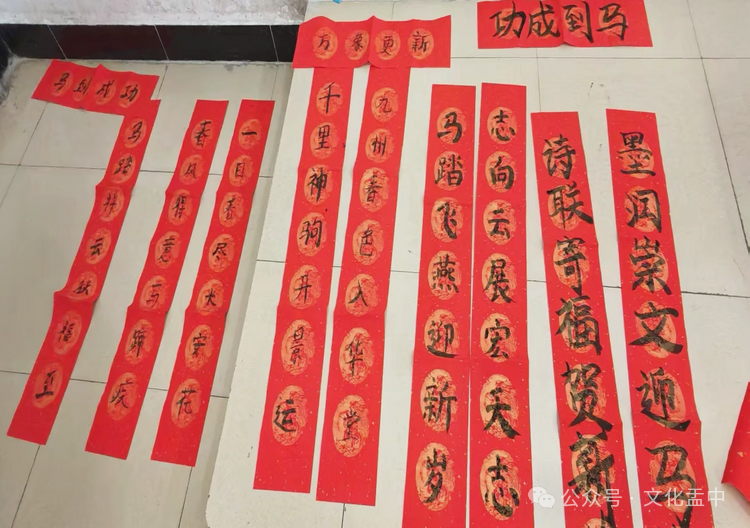 功成到马
万象更新
马到成功
马踏祥云
福至
春风得意马蹄疾
一日看尽长安花
千里神驹开景运
九州春色入华堂
马踏飞燕迎新岁
志向云展宏天志
诗联寄福贺新
墨润崇文迎马
公众号·文化盂中